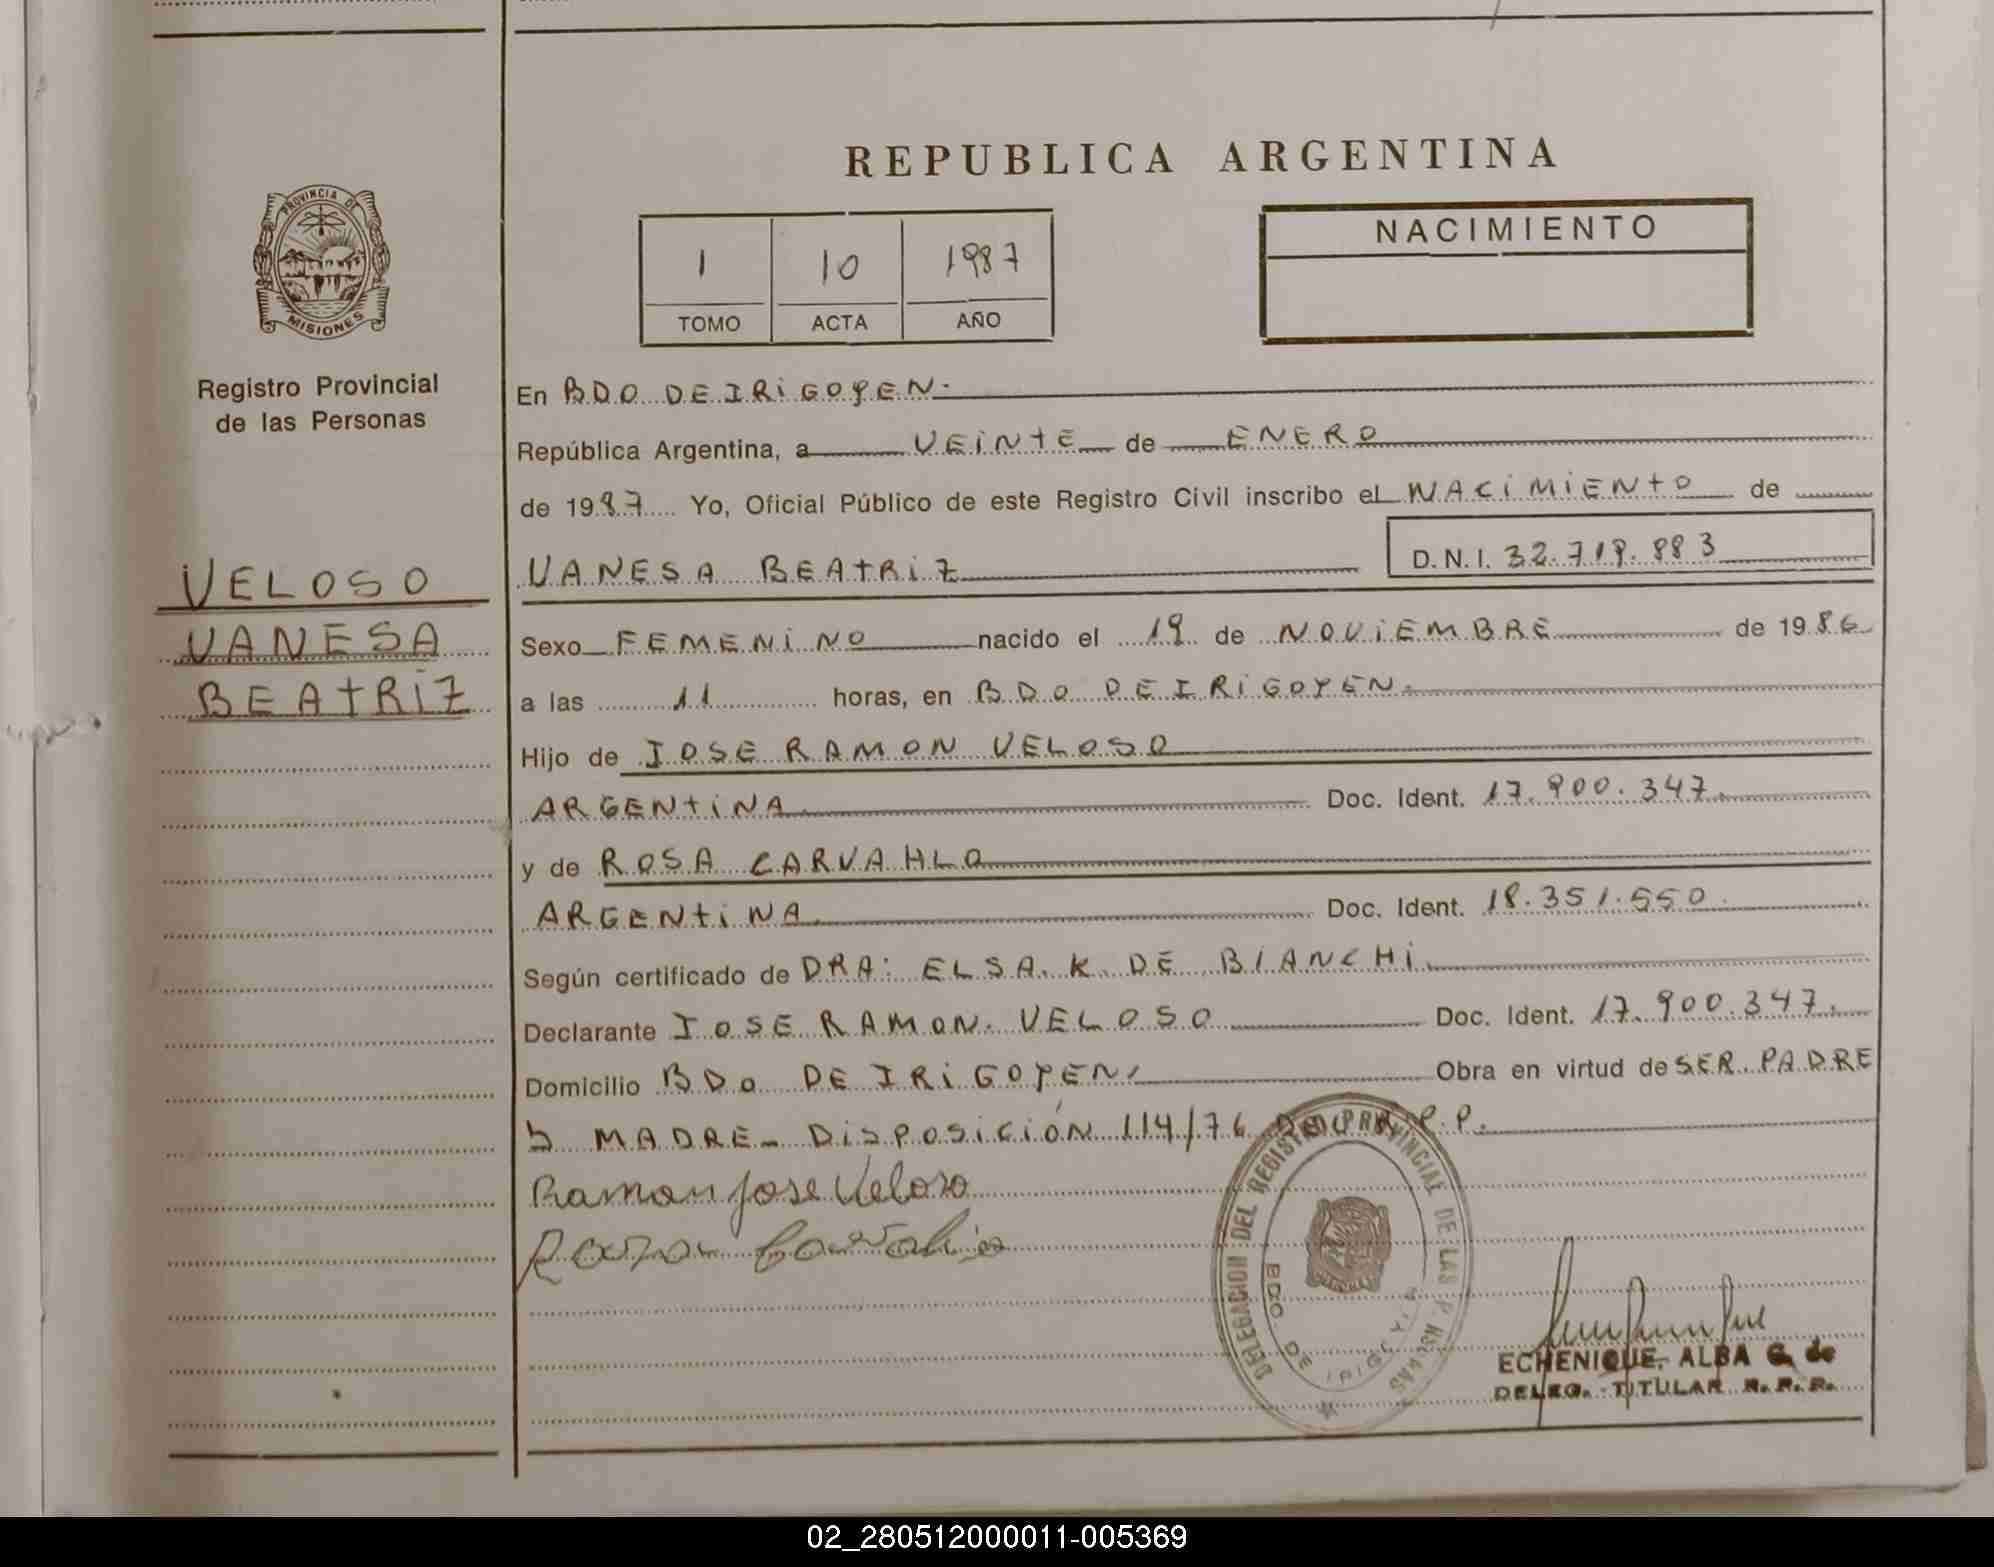 REPUBLICA ARGENTINA
PROVINCIA DE
MISIONES
Registro Provincial
de las Personas
1 10 1987
TOMO ACTA AÑO
NACIMIENTO
En BDO DE IRIGOYEN.
República Argentina, a VEINTE de ENERO
de 1987 Yo, Oficial Público de este Registro Civil inscribo el NACIMIENTO de
VELOSO
VANESA
BEATRIZ
VANESA BEATRIZ D.N.I. 32.719.883
Sexo FEMENINO nacido el 19 de NOVIEMBRE de 1986
a las 11 horas, en BDO DE IRIGOYEN.
Hijo de JOSE RAMON VELOSO
ARGENTINA Doc. Ident. 17.900.347.
y de ROSA CARVAHLO
ARGENTINA. Doc. Ident. 18.351.550.
Según certificado de DRA: ELSA. K. DE BIANCHI.
Declarante JOSE RAMON. VELOSO Doc. Ident. 17.900.347.
Domicilio BDO DE IRIGOYEN, Obra en virtud de SER. PADRE
Y MADRE- DISPOSICIÓN 114/76 P.P.
Ramon Jose Veloso
DELEGACION DEL REGISTRO PROVINCIAL DE LAS PERSONAS
BDO. DE IRIGOYEN
ECHENIQUE, ALBA G. de
DELEG. TITULAR R.P.P.
02_280512000011-005369